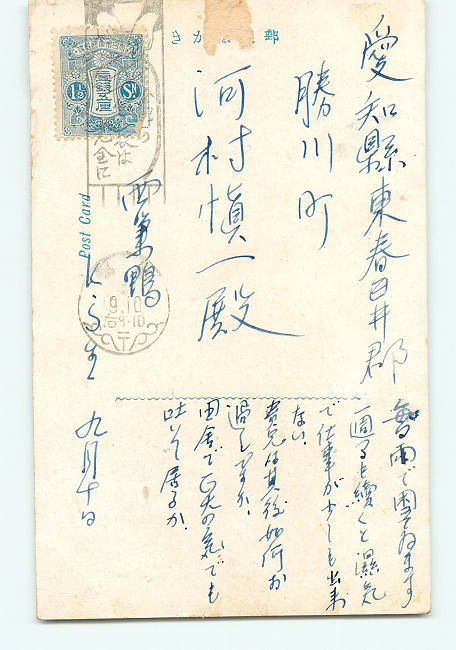 郵便はがき
愛知縣東春日井郡
勝川町
河村愼一殿
西巣鴨
九月十日
Post Card
1½ Sn
壹錢五厘
9.10
毎日雨で困つてゐます
一週間も續くと濕氣
で仕事が少しも出来
ない
貴兄は其後如何お
過しですか
田舎で正大の気でも
吐いて居るか